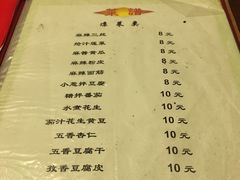 菜譜
凉菜类
麻辣三丝 8元
炝汁菠菜 8元
麻酱黄瓜 8元
麻辣粉皮 8元
麻辣面筋 8元
小葱拌豆腐 8元
糖拌番茄 10元
水煮花生 10元
茄汁花生黄豆 10元
五香杏仁 10元
五香豆腐干 10元
孜香豆腐皮 10元